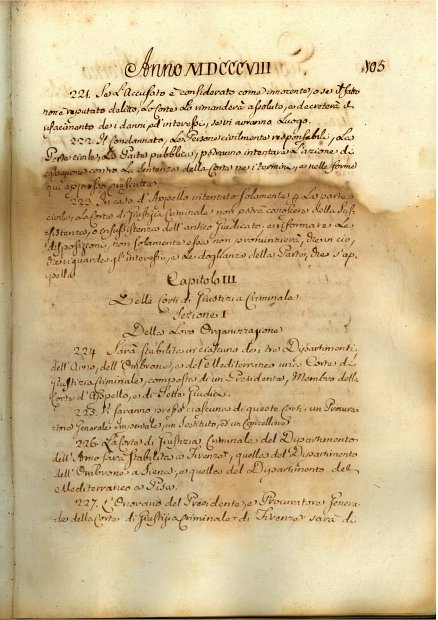 Anno MDCCCVIII 105
221. Se L'Accusato è considerato come innocente, o se il fatto
non è reputato delitto, la Corte Lo rimanderà assoluto, e decreterà il
rifacimento de i danni, ed interessi, se vi avranno Luogo.
222. Il Condannato, Le Persone civilmente responsabili, La
Parte civile, La Parte pubblica, potranno intentare L'azione di
cassazione contro La Sentenza della Corte ne i termini, e nelle forme
qui appresso prescritte.
223. In caso d'Appello intentato solamente La parte
civile, La Corte di Giustizia Criminale non potrà conoscere della Sus-
sistenza, o insussistenza dell'antico Giudicato, e riformare Le
disposizioni, non solamente esse non pronunzierà, che in ciò,
che riguarda gl'interessi, e Le doglianze della Parte, che s'ap-
pella
Capitolo III
Delle Corti di Giustizia Criminale
Sezione I
Della Loro Organizzazione
224. Sarà Stabilita in ciascuno de i tre Dipartimenti
dell'Arno, dell'Ombrone, e del Mediterraneo una Corte di
Giustizia Criminale, composta di un Presidente, Membro della
Corte d'Appello, e di Sette Giudici.
225. Vi saranno presso ciascuna di queste Corti, un Procura-
tore Generale Imperiale, un Sostituto, ed un Cancelliere
226. La Corte di Giustizia Criminale del Dipartimento
dell'Arno sarà Stabilita a Firenze, quella del Dipartimento
dell'Ombrone a Siena, e quella del Dipartimento del
Mediterraneo a Pisa.
227. L'Onorario del Presidente, e Procuratore Genera-
le della Corte di Giustizia Criminale di Firenze sarà di